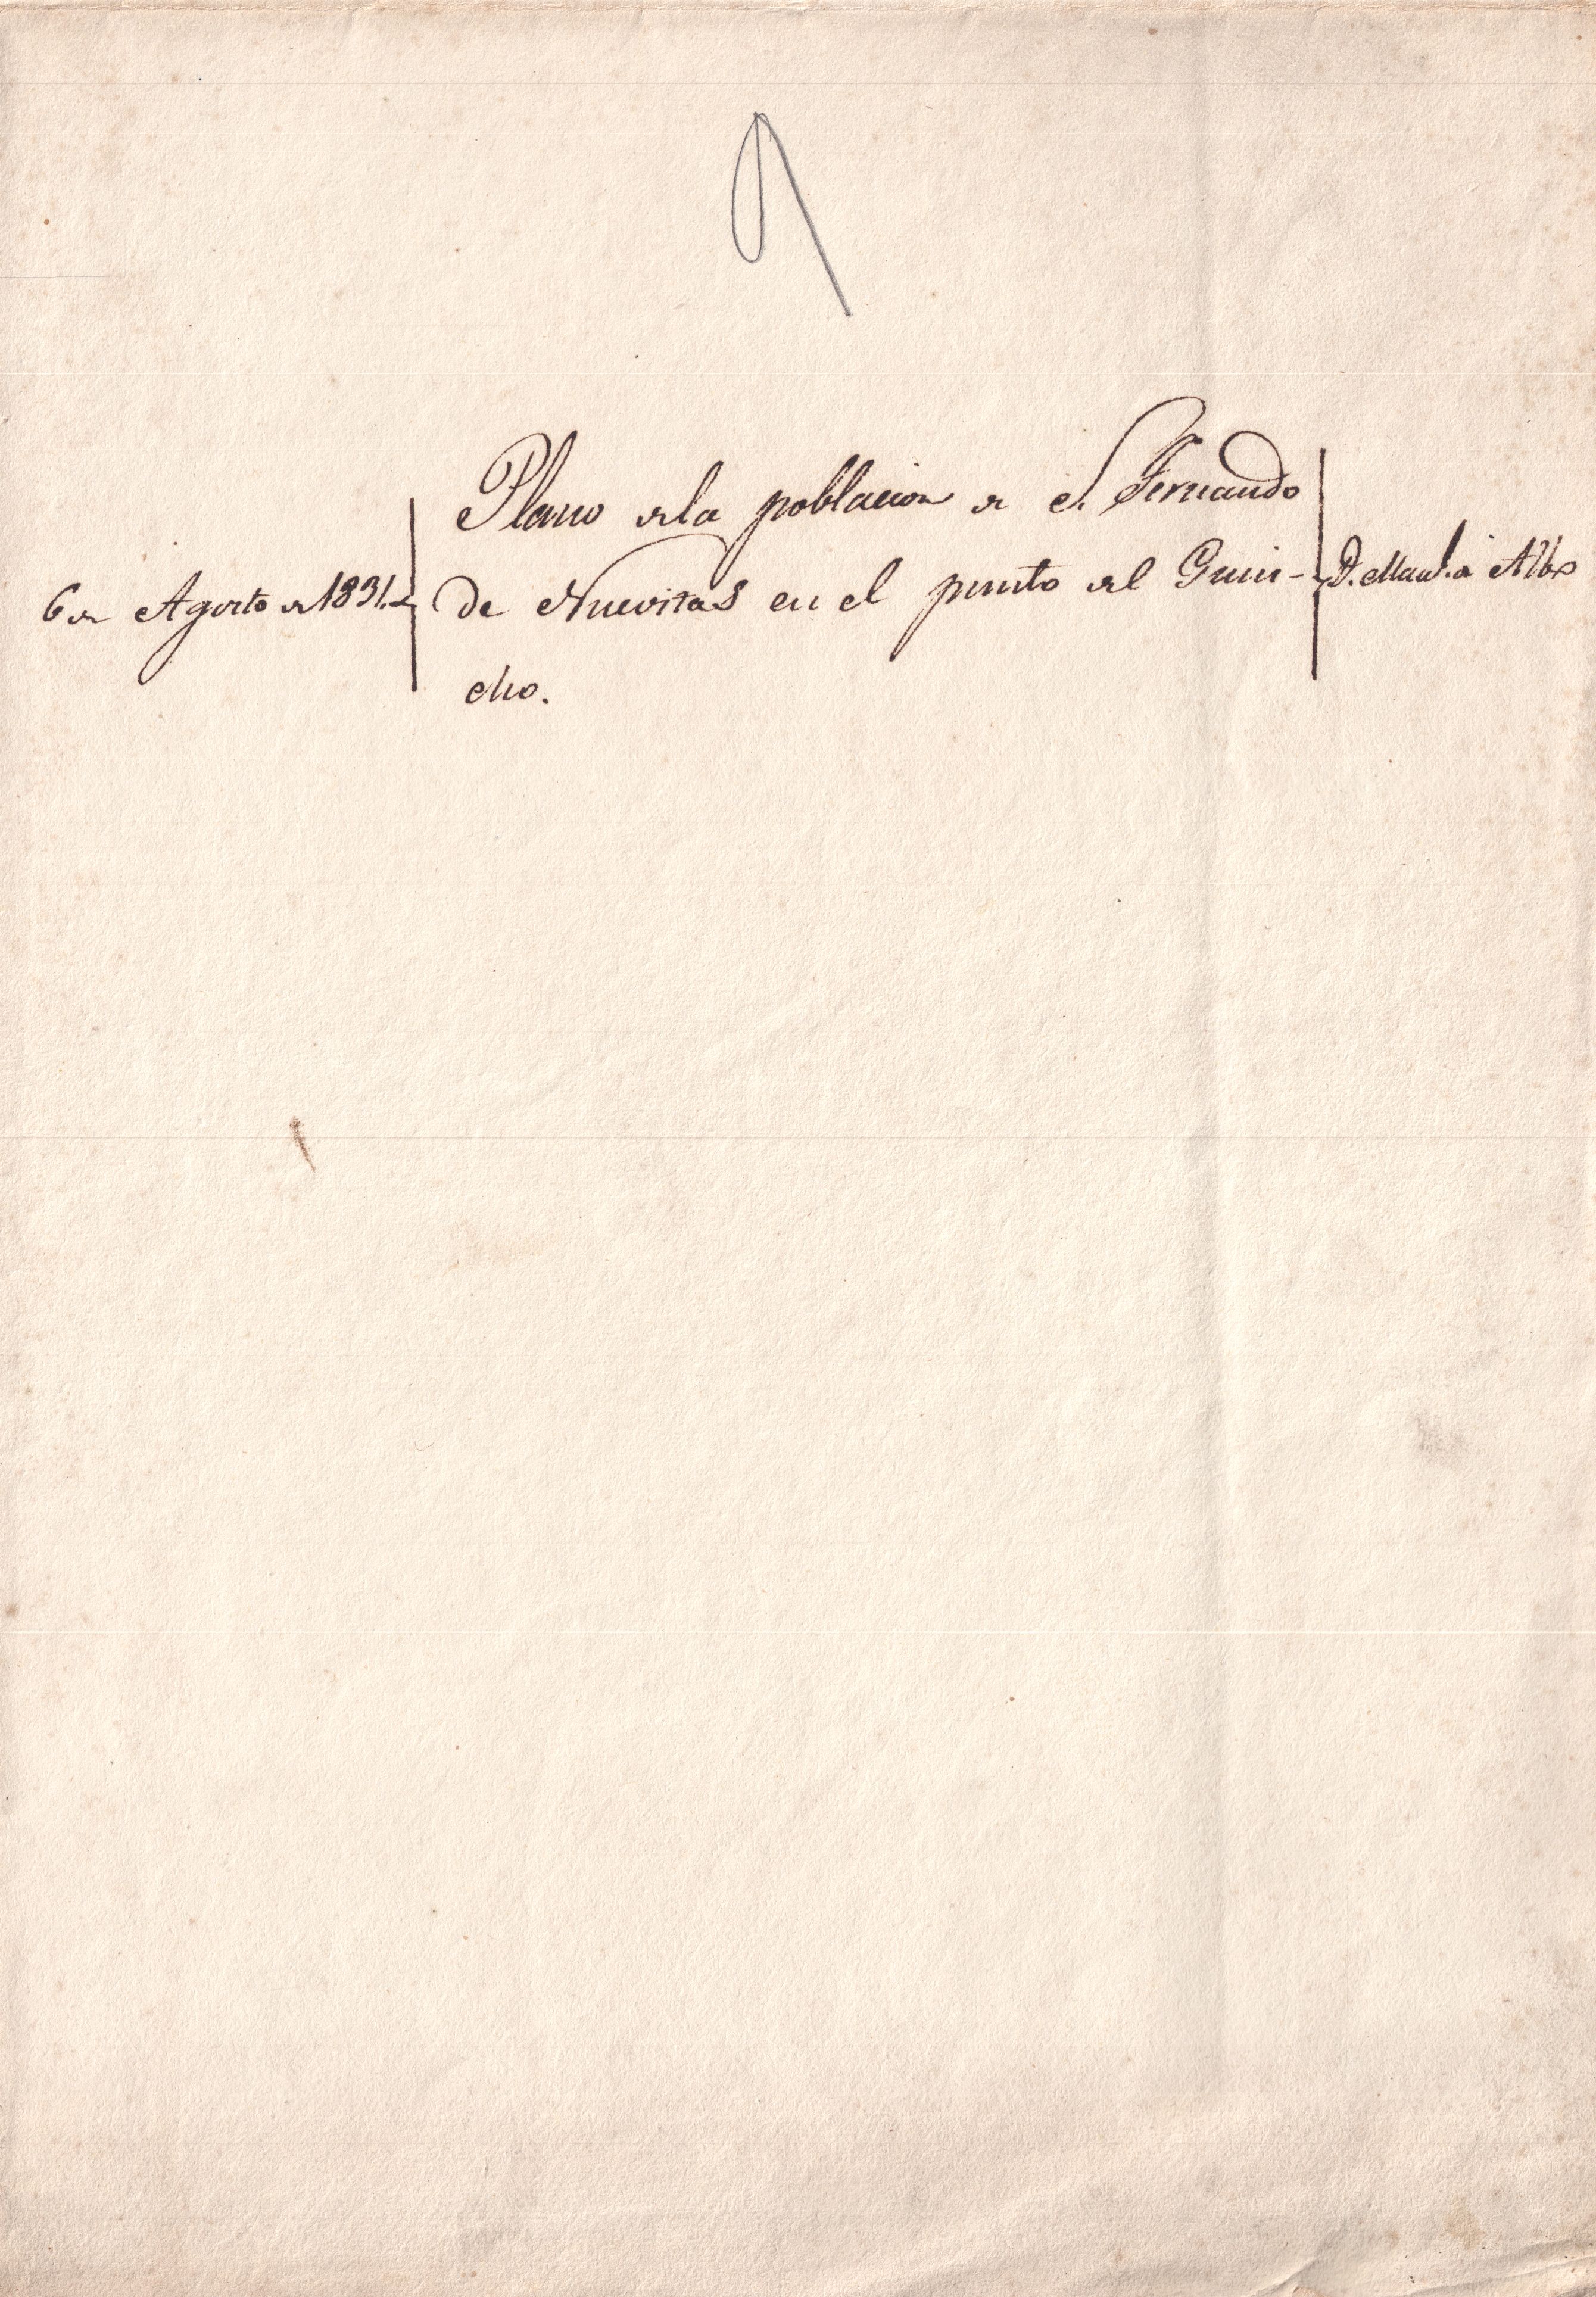 6 de Agosto de 1831.
Plano de la poblacion de S. Fernando
de Nuevitas en el punto del Guin-
cho.
D.